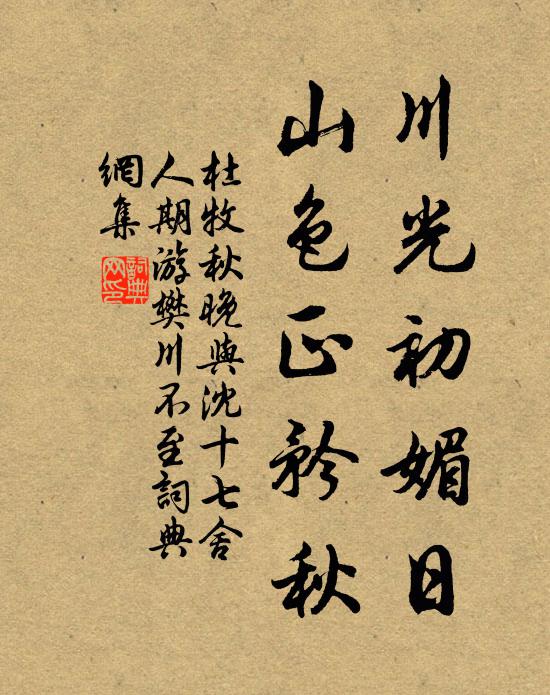 川光初媚日
山色正矜秋
杜牧秋晚與沈十七舍
人期游樊川不至詞典
網集
詞典
网印